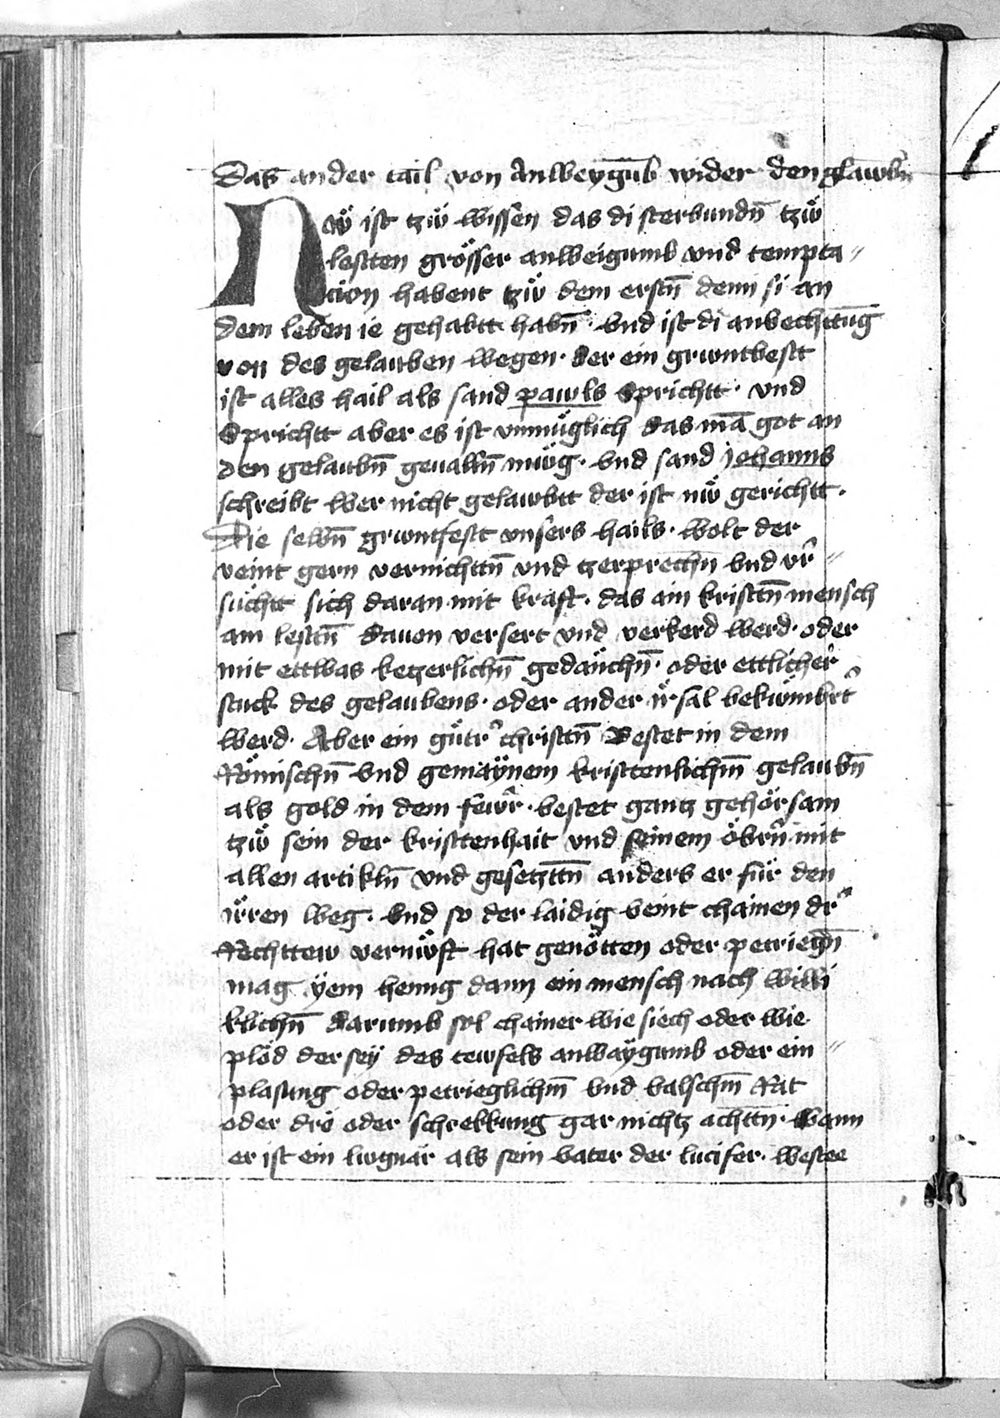 Das ander tail von Anweygu̅b wider den glawbn̅
Nẅ ist tzẅ wissen das di sterbundn̅ tzẅ
lestten grösser anweigumb vnd tempta〃
cion habent tzẅ dem erstn̅ denn si an
dem leben ie gehabtt habn̅ · vnd ist di anvechttu̅g
von des gelauben wegen · Der ein gruntvestt
ist alles hail als sand pawls Sprichtt · vnd
Sprichtt aber es ist vnmüglich das ma̅ got an
den gelaubn̅ geualln̅ müg · vnd sand johanns
schreibt wer nicht gelawbtt der ist nẅ gerichtt ·
Die selbn̅ gruntfestt vnsers hails · wolt der
veint gern vernichttn̅ vnd tzerprechn̅ vnd vr̂〃
sůchtt sich daran mit kraft · das ain kristtn̅ mensch
am lesttn̅ dauon versert vnd verkerd werd · oder
mit ettwas ketzerlichn̅ gedäuchn̅ · oder ettlicher̂
stuck des gelaubens · oder ander ir̈sal bekümbrt̂
werd · Aber ein gůtr̂ christtn̅ Bestet in dem
Römischn̅ vnd gemaÿnem kristtenlichm̅ gelaubn̅
als gold in dem fewr̂ · bestet gantz gehörsam
tzẅ sein der kristtenhait vnd seinem öbrn̂ mit
allen artikln̅ vnd gesetzttn̅ anders er für den
irren weg · Vnd so der laidig veint chainen dr̂
Rechttew vernẅft hat genötten oder petriegn̅
mag ÿem henng dann ein mensch nach willi
klichn̅ darumb sol chainer wie siech oder wie
plöd der seÿ des tewfels anwaÿgumb oder ein〃
plasung oder petrieglichm̅ vnd valschm̅ Rat
oder drö oder schrekkung gar nichtz achttn̅ · wann
er ist ein lugnär als sein vater der lucifer · westee